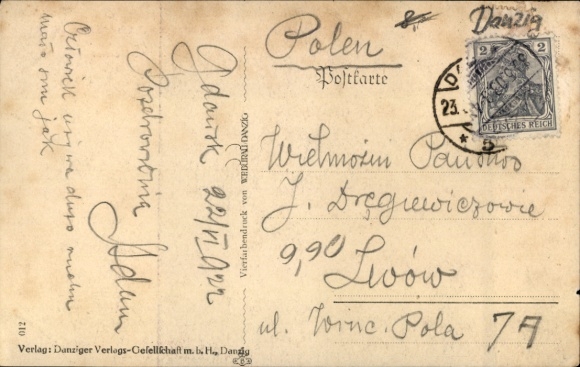 Danzig
Polen
Postkarte
2 2
DEUTSCHES REICH
23.
5
Wielmożni Państwo
J. Dręgiewiczowie
9,90 Lwów
ul. Winc. Pola 7A
Gdańsk 22/VI 922
Pozdrowienia
Adam
Człowiek
mało jak
Vierfarbendruck von DANZIG
210
Verlag: Danziger Verlags-Gesellschaft m. b. H., Danzig